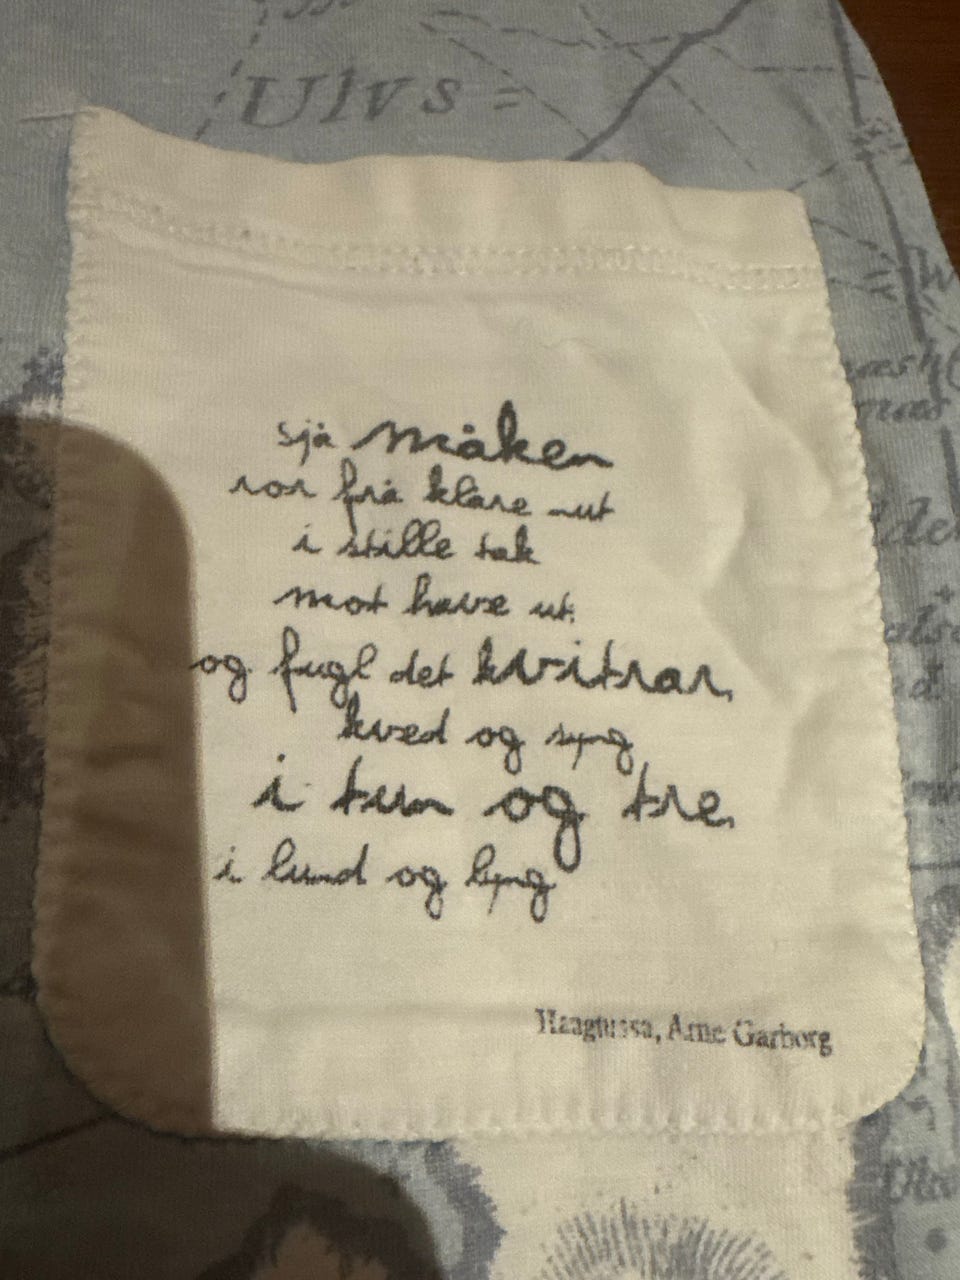 Ulvs =
sjå måken
ror frå klåre ut
i stille tak
mot have ut.
og fugl det kvitrar,
kved og syng
i tun og tre,
i lund og lyng
Haagtussa, Arne Garborg